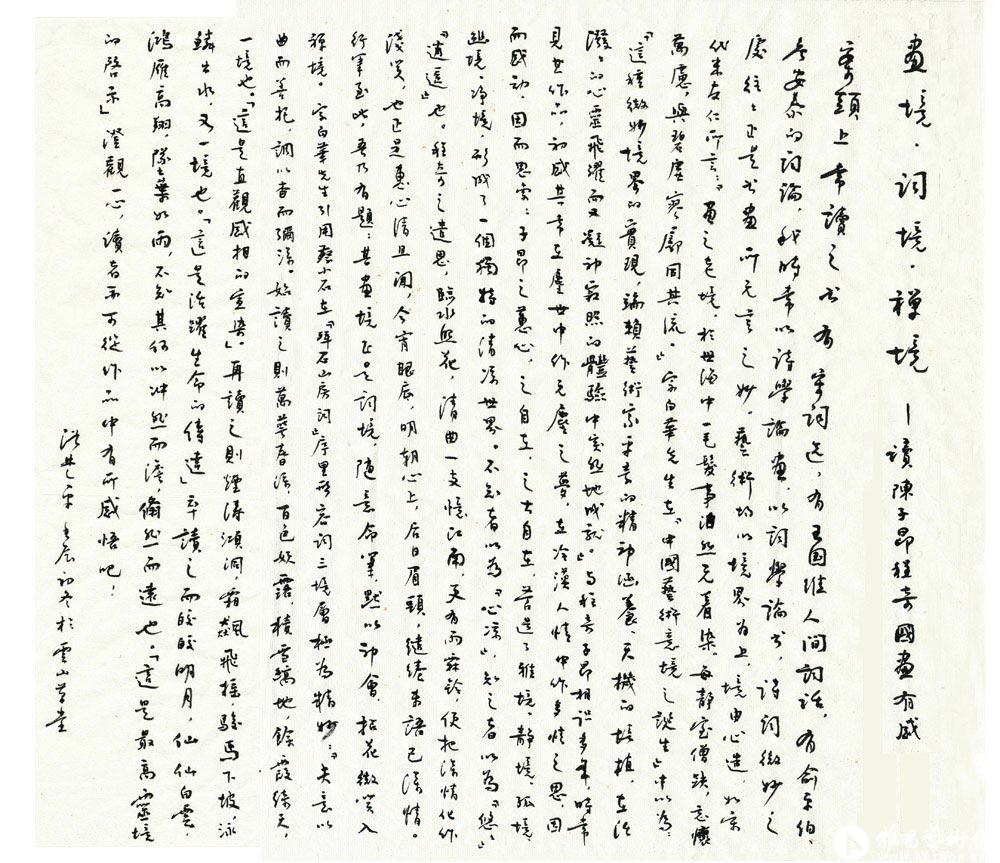 畫境·詞境·禪境 —讀陳子昂程奇國畫有感
案頭上常讀之书有宋詞选，有王国维人间词话，有俞平伯、
吴安泰的词論，我時常以詩學論畫，以詞學論书，詩词微妙之
處往往正是书畫所无言之妙，藝術均以境界为上，境由心造，如宋
代米友仁所言：“畫之老境，於世海中一毛髮事泊然无着染。每静室僧趺，忘懷
萬慮，與碧虚寥廓同其流。”宗白華先生在“中國藝術意境之誕生”中以為：
“這種微妙境界的實現，端賴藝術家平音的精神涵養、天機的培植，在活
潑潑的心靈飛躍而又凝神寂照的體驗中突然地成就。”与程奇子昂相识多年，時常
見其作品，初感其常在塵世中作无塵之夢，在冷漠人情中作多情之思，因
而感动，因而思索：子昂之蕙心，之自在，之大自在，营造了雅境、静境、孤境、
幽境、净境，形成了一個獨特的清凉世界。不知者以為“心凉”，知之者以為“悠”
“逍遥”也。程奇之遣思，臨水照花，清曲一支憶江南，更有雨霖鈴，便把深情化作
淺笑，也正是惠心清且闻，今宵眼底，明朝心上，后日眉頭，缱绻未語已深情。
行筆至此，吾乃有題：其畫境正是詞境，随意命筆，默以神會，拈花微笑入
禅境。宗白華先生引用蔡小石在“拜石山房詞”序里形容词三境層極為精妙：“夫意以
曲而善托，調以杳而彌深。始讀之則萬萼春深，百色妖露，積雪縞地，餘霞綺天，
一境也。”“這是直觀感相的宣染”。再讀之則煙濤澒洞，霜飆飛摇，駿馬下坡，泳
鱗出水，又一境也。“這是活躍生命的傳達”卒讀之而皎皎明月，仙仙白雲，
鴻雁高翔，墜葉如雨，不知其何以冲然而澹，翛然而遠也。“這是最高靈境
的啓示”澄觀一心，讀者亦可從作品中有所感悟吧！
洪 平壬辰初冬於雲山草堂
雅昌藝術